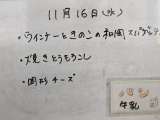 11月16日(水)
・ウインナーときのこの和風スパゲッティ
・焼きとうもろこし
・円形チーズ
牛乳